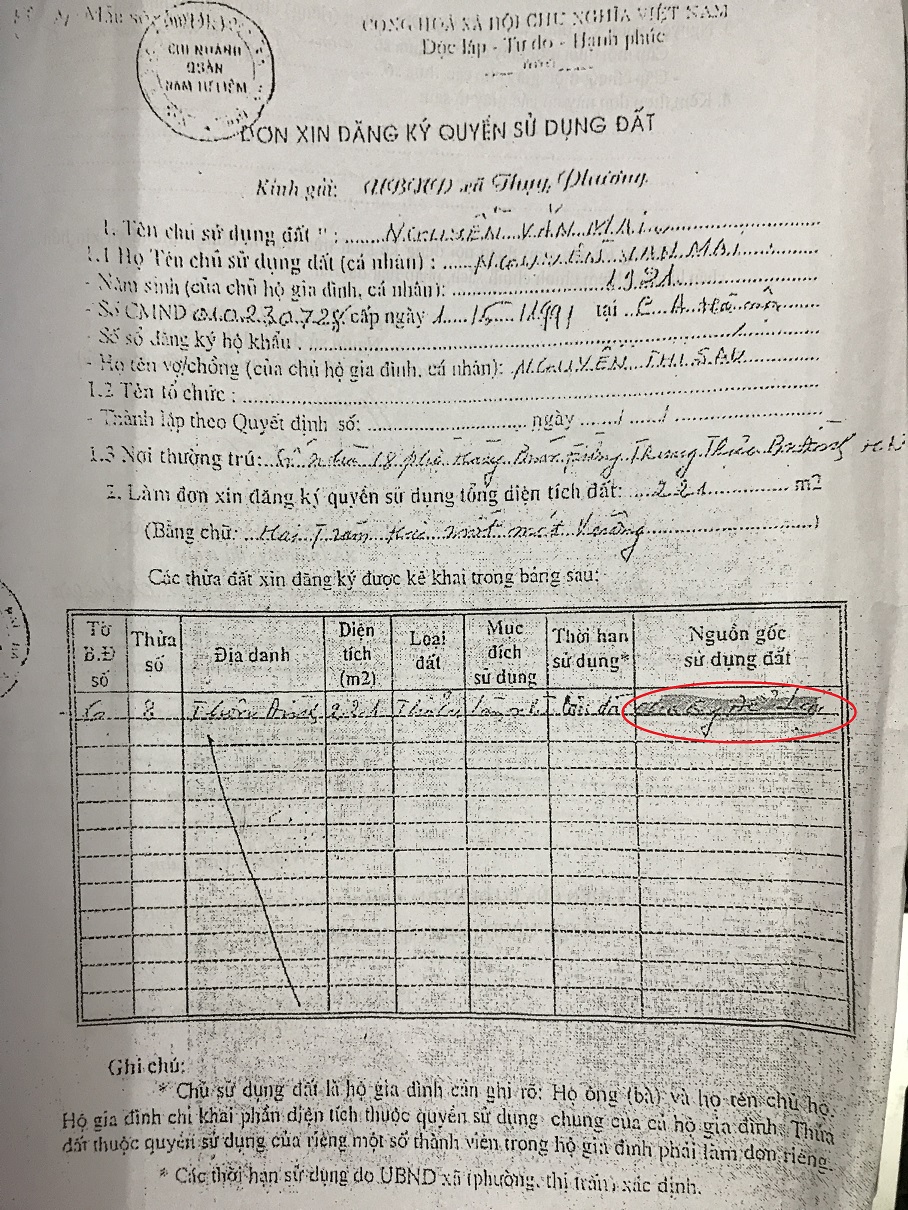 Mẫu số
CỘNG HOÀ XÃ HỘI CHỦ NGHĨA VIỆT NAM
Độc lập - Tự do - Hạnh phúc
CHI NHÁNH
QUẬN
NAM TỪ LIÊM
ĐƠN XIN ĐĂNG KÝ QUYỀN SỬ DỤNG ĐẤT
Kính gửi: UBND xã Thụy Phương
1. Tên chủ sử dụng đất : NGUYỄN VĂN MAI
1.1 Họ Tên chủ sử dụng đất (cá nhân) : NGUYỄN VĂN MAI
- Năm sinh (của chủ hộ gia đình, cá nhân): 1921
- Số CMND 010230728 cấp ngày 1 1991 tại C.A Hà nội
- Số sổ đăng ký hộ khẩu :
- Họ tên vợ/chồng (của chủ hộ gia đình, cá nhân): NGUYỄN THỊ SAU
1.2 Tên tổ chức :
- Thành lập theo Quyết định số: ngày / /
1.3 Nơi thường trú: Số 18 phố hàng Bún
2. Làm đơn xin đăng ký quyền sử dụng tổng diện tích đất: 221 m2
(Bằng chữ: Hai Trăm Hai mốt mét Vuông)
Các thửa đất xin đăng ký được kê khai trong bảng sau:
Tờ B.Đ số
Thửa số
Địa danh
Diện tích (m2)
Loại đất
Mục đích sử dụng
Thời hạn sử dụng*
Nguồn gốc sử dụng đất
6 8 221 Thổ cư lâu dài
Ghi chú:
* Chủ sử dụng đất là hộ gia đình cần ghi rõ: Hộ ông (bà) và họ tên chủ hộ.
Hộ gia đình chỉ khai phần diện tích thuộc quyền sử dụng chung của cả hộ gia đình. Thửa
đất thuộc quyền sử dụng của riêng một số thành viên trong hộ gia đình phải làm đơn riêng.
* Các thời hạn sử dụng do UBND xã (phường, thị trấn) xác định.